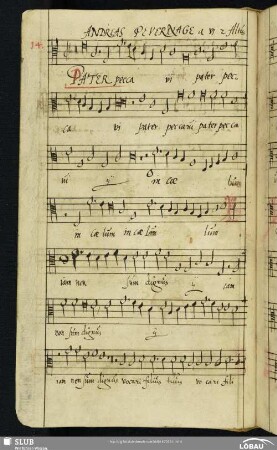 ANDREAS PEVERNAGE a VI 2
34.
PATER pecca vi pater pec
ca vi pater peccavi pater pecca
vi ij in cae lum
in cae lum in cae lum
iam non sum dignus ij iam
non sum dignus ij
iam non sum dignus vocari filius tuus vocari fili
SLUB
LÖBAU